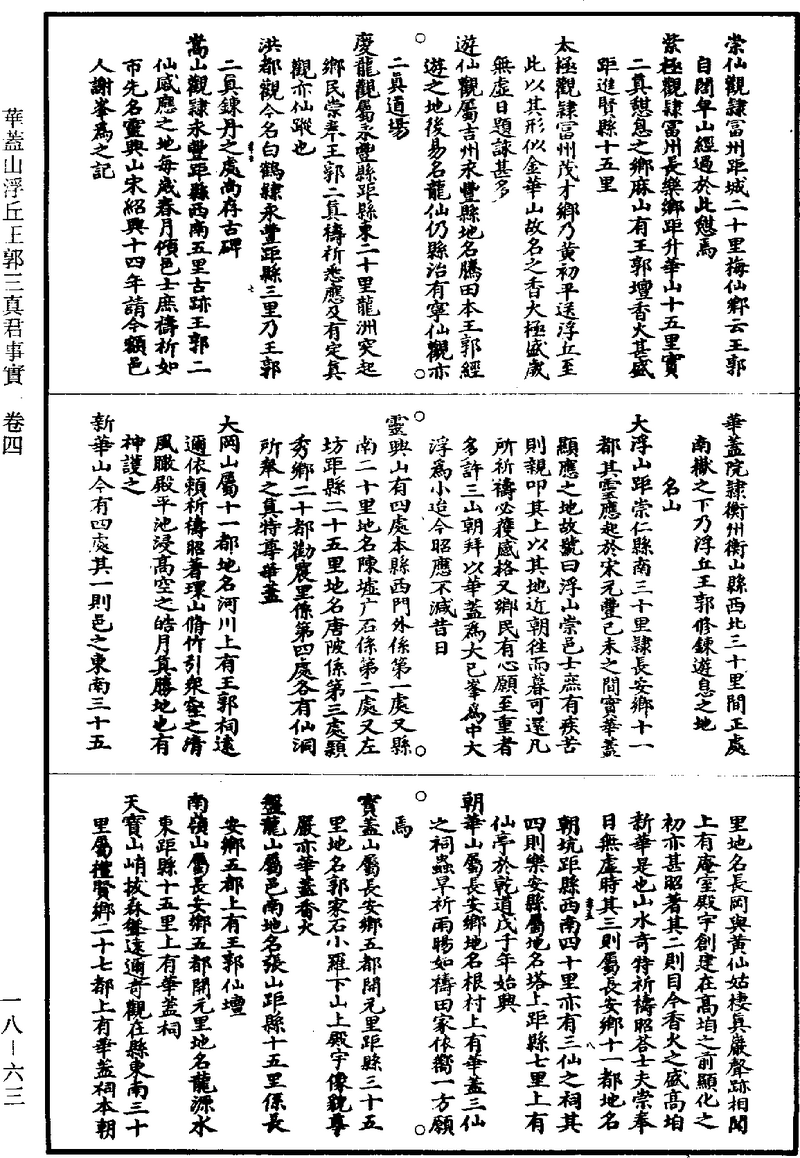 棠仙觀隸富州距城二十里梅仙鄉云王郭
自閤皁山經過於此憇焉
紫極觀隸富州長樂鄉距升華山十五里實
二真憇息之鄉麻山有王郭壇香火甚盛
距進賢縣十五里
太極觀隸富州茂才鄉乃黃初平送浮丘至
此以其形似金華山故名之香火極盛歲
無虛日題詠甚多
遊仙觀屬吉州永豐縣地名騰田本王郭經
遊之地後易名龍仙仍縣治有寧仙觀亦
二真道場
慶龍觀屬永豐縣距縣東二十里龍洲突起
鄉民崇奉王郭二真禱祈悉應及有定真
觀亦仙蹤也
洪都觀今名白鶴隸永豐距縣三里乃王郭
二真鍊丹之處尚存古碑
嵩山觀隸永豐距縣西南五里古跡王郭二
仙感應之地每歲春月傾邑士庶禱祈如
市先名靈興山宋紹興十四年請今額邑
人謝峯爲之記
華蓋院隸衡州衡山縣西北三十里間正處
南嶽之下乃浮丘王郭修鍊遊息之地
名山
大浮山距崇仁縣南三十里隸長安鄉十一
都其靈應起於宋元豐己未之間實華蓋
顯應之地故號曰浮山崇邑士庶有疾苦
則親叩其上以其地近朝往而暮可還凡
所祈禱必獲感格又鄉民有心願至重者
多許三山朝拜以華蓋爲大巴峯爲中大
浮爲小迨今昭應不減昔日
靈興山有四處本縣西門外係第一處又縣
南二十里地名陳墟广石係第二處又左
坊距縣二十五里地名唐陂係第三處穎
秀鄉二十都勸農里係第四處各有仙洞
所奉之真特尊華蓋
大岡山屬十一都地名河川上有王郭祠遠
邇依頼祈禱昭著環山脩竹引衆壑之清
風瞰殿平池浸高空之皓月真勝地也有
神護之
新華山今有四處其一則邑之東南三十五
里地名長岡與黃仙姑棲真巖聲跡相聞
上有庵室殿宇創建在高㘰之前顯化之
初亦甚昭著其二則目今香火之盛高㘰
新華是也山水奇特祈禱昭荅士夫崇奉
日無虛時其三則屬長安鄉十一都地名
朝坑距縣西南四十里亦有三仙之祠其
四則樂安縣屬地名塔上距縣七里上有
仙亭於乾道戊子年始興
朝華山屬長安鄉地名根村上有華蓋三仙
之祠蟲旱祈雨暘如禱田家依嚮一方願
焉
寶蓋山屬長安鄉五都開元里距縣三十五
里地名郭家石小羅下山上殿宇像貌尊
嚴亦華蓋香火
盤龍山屬邑南地名張山距縣十五里係長
安鄉五都上有王郭仙壇
南嶺山屬長安鄉五都開元里地名龍漂水
東距縣十五里上有華蓋祠
天寶山峭拔森聳遠邇奇觀在縣東南三十
里屬禮賢鄉二十七都上有華蓋祠本朝
華蓋山浮丘王郭三真君事實 卷四
一八－六三